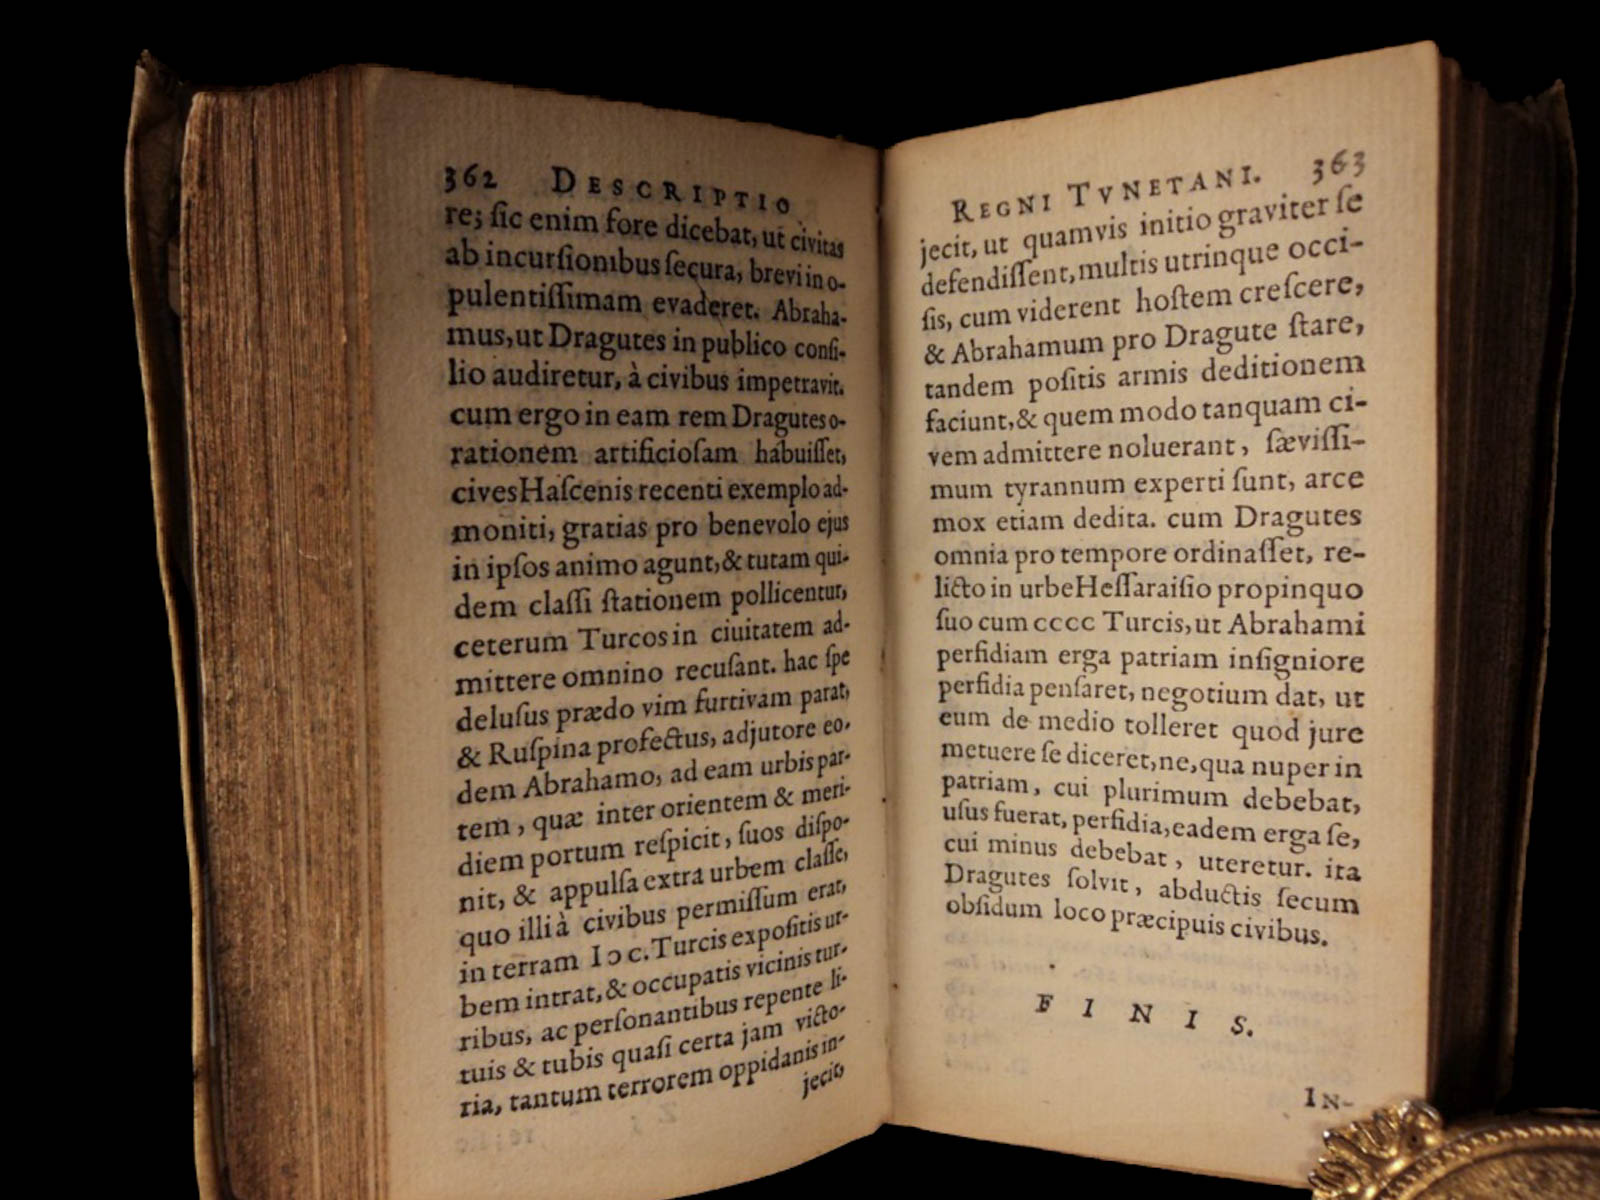 362 DESCRIPTIO
re; ſic enim fore dicebat, ut civitas
ab incurſionibus ſecura, brevi in o-
pulentiſſimam evaderet. Abraha-
mus, ut Dragutes in publico conſi-
lio audiretur, à civibus impetravit.
cum ergo in eam rem Dragutes o-
rationem artificioſam habuiſſet,
cives Haſcenis recenti exemplo ad-
moniti, gratias pro benevolo ejus
in ipſos animo agunt, & tutam qui-
dem claſſi ſtationem pollicentur,
ceterum Turcos in ciuitatem ad-
mittere omnino recuſant. hac ſpe
deluſus prædo vim furtivam parat,
& Ruſpina profectus, adjutore eo-
dem Abrahamo, ad eam urbis par-
tem, quæ inter orientem & meri-
diem portum reſpicit, ſuos diſpo-
nit, & appulſa extra urbem claſſe,
quo illi à civibus permiſſum erat,
in terram Iɔc. Turcis expoſitis ur-
bem intrat, & occupatis vicinis tur-
ribus, ac perſonantibus repente li-
tuis & tubis quaſi certa jam victo-
ria, tantum terrorem oppidanis in-
jecit,
REGNI TVNETANI. 363
jecit, ut quamvis initio graviter ſe
defendiſſent, multis utrinque occi-
ſis, cum viderent hoſtem creſcere,
& Abrahamum pro Dragute ſtare,
tandem poſitis armis deditionem
faciunt, & quem modo tanquam ci-
vem admittere noluerant, ſæviſſi-
mum tyrannum experti ſunt, arce
mox etiam dedita. cum Dragutes
omnia pro tempore ordinaſſet, re-
licto in urbe Heſſaraiſio propinquo
ſuo cum cccc Turcis, ut Abrahami
perfidiam erga patriam inſigniore
perfidia penſaret, negotium dat, ut
eum de medio tolleret quod jure
metuere ſe diceret, ne, qua nuper in
patriam, cui plurimum debebat,
uſus fuerat, perfidia, eadem erga ſe,
cui minus debebat, uteretur. ita
Dragutes ſolvit, abductis ſecum
obſidum loco præcipuis civibus.
FINIS.
IN-